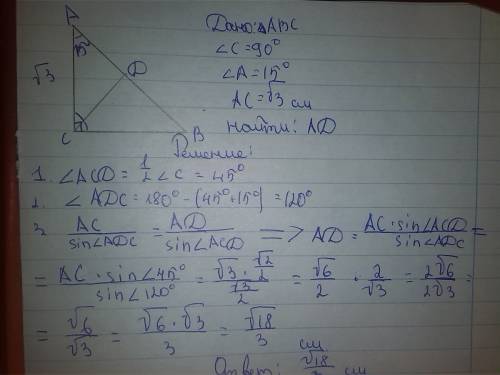 A
15°
√3
D
C
B
Дано: △ABC
∠C=90°
∠A=15°
AC=√3 см
Найти: AD
Решение:
1. ∠ACD = 1/2 ∠C = 45°
2. ∠ADC = 180° - (45°+15°) = 120°
3. AC/sin∠ADC = AD/sin∠ACD => AD = AC·sin∠ACD/sin∠ADC =
= AC·sin∠45°/sin∠120° = (√3·√2/2)/(√3/2) = √6/2 · 2/√3 = 2√6/2√3 =
= √6/√3 = √6·√3/3 = √18/3 см
Ответ: √18/3 см